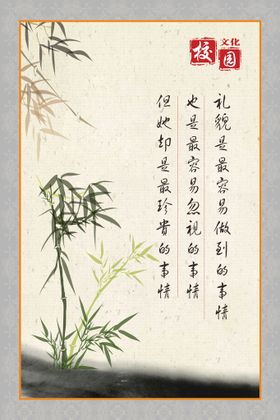 校园
文化
礼貌是最容易做到的事情
也是最容易忽视的事情
但她却是最珍贵的事情